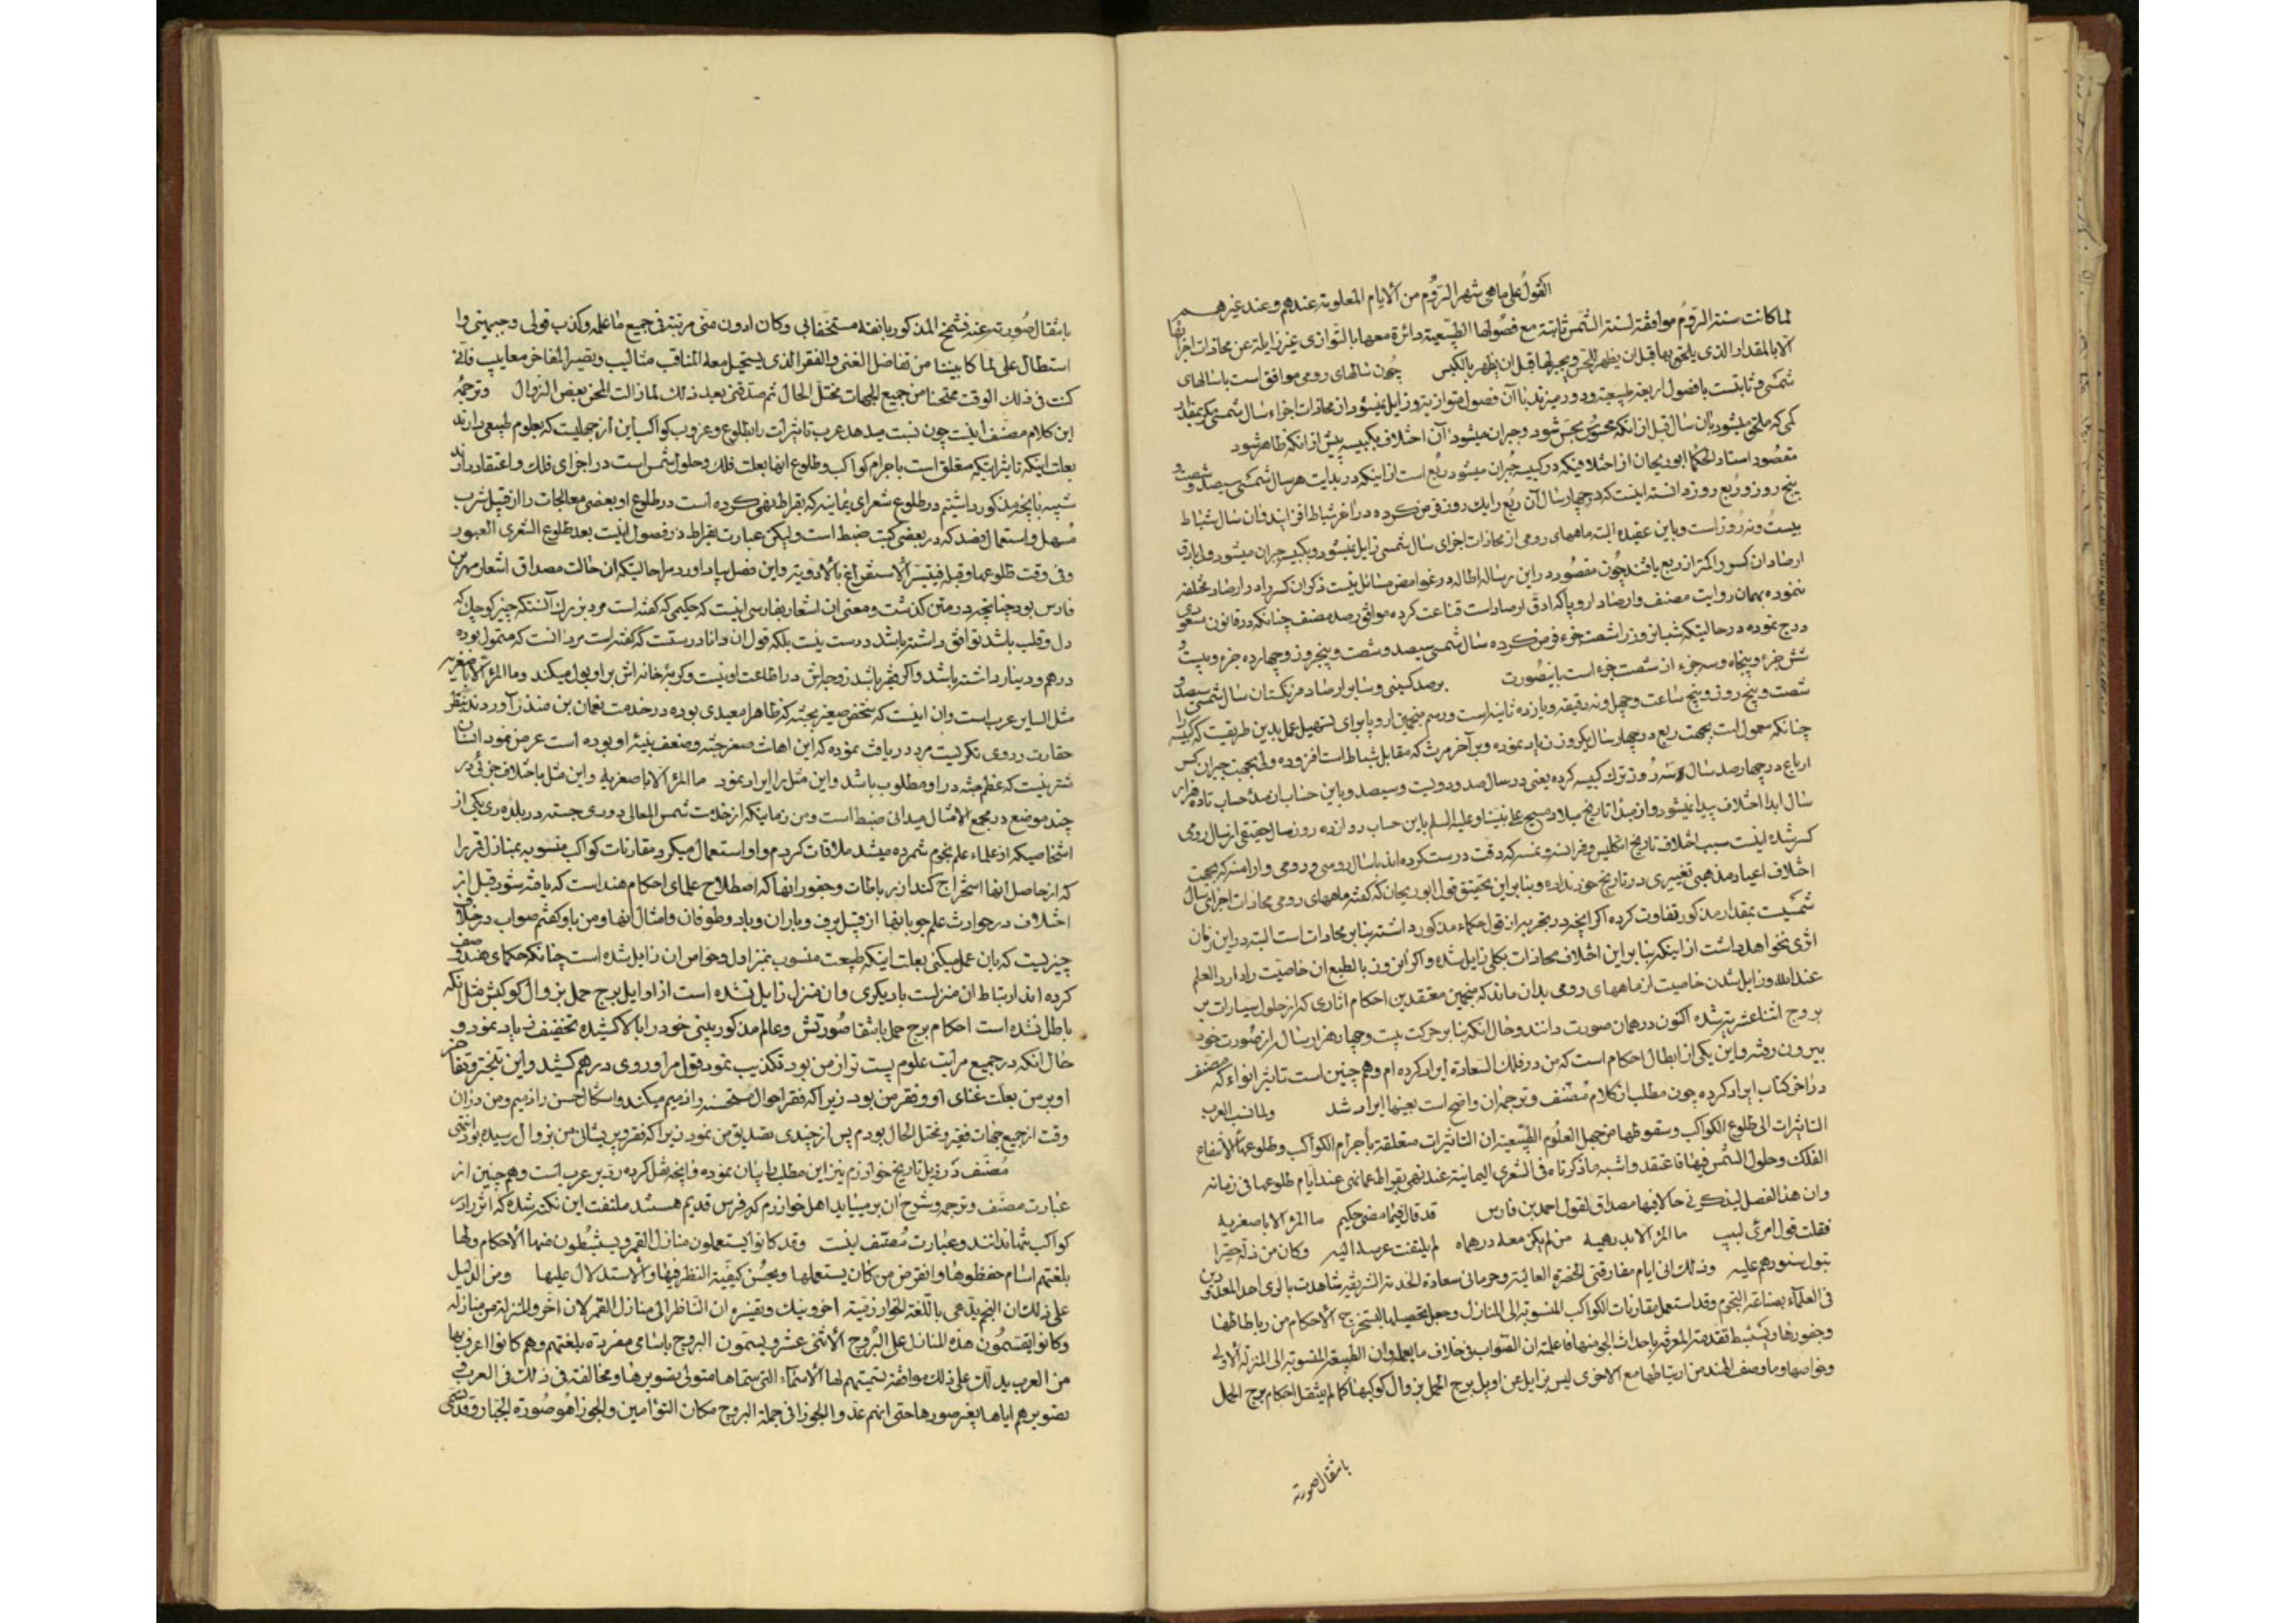 القول علی ماهی شهرالرّوم من الایام المعلومة عندهم وعند غیرهم
لما کانت سنة الرّوم موافقة لسنة الشمس ثابتة مع فصولها الطبیعیة دائرة معها بالتوازی غیر زایلة عن محاذات اجزائها
الا بالمقدار الذی یلحق بها قبل ان یظهر للحس ویجبر لها قبل ان یظهر بالکبس چون سالهای رومی موافق است باسالهای
شمسی و ثابتست با فصول اربعه طبیعیه و دور میزند با آن فصول بتوازی و زایل نمیشود از محاذات اجزاء سال شمسی مگر بمقدار
کمی که ملحق میشود بان سال قبل از انکه محسوس بحس شود و جبران میشود آن اختلاف بکبیسه پیش از انکه ظاهر شود
مقصود استاد الحکما ابوریحان از اختلافیکه در کبیسه جبران میشود ربع است از اینکه در بدایت هر سال شمسی سیصد و شصت و
پنج روز و ربع روز دانسته اینست که در چهار سال آن ربع را یک روز فرض کرده در اخر شباط افزایند و ان سال شباط
بیست و نه روز است و باین عقیده البته ماههای رومی از محاذات اجزای سال شمسی زایل نمیشود و بکبیسه جبران میشود ولی بارق
ارصاد ان کسور را کمتر از ربع یافتند چون مقصود در این رساله اطاله در غوامض مسائل نیست ذکر ان کسر را در ارصاد مختلفه
ننموده بهمان روایت مصنف و ارصاد اروپا که ادق ارصاد است قناعت کرده موافق رصد مصنف چنانکه در قانون مسعودی
درج نموده در حالتیکه شبانروز را شصت جزء فرض کرده سال شمسی سیصد و شصت و پنجروز و چهارده جزء و بیست و
شش جزء و پنجاه و سه جزء از شصت جزء است باینصورت برصد کسینی و سایر ارصاد فرنگستان سال شمسی سیصد و
شصت و پنج روز و پنج ساعت و چهل و نه دقیقه و یازده ثانیه است و رسم منجمین اروپا برای تسهیل عمل بدین طریقست که کبیسه را
چنانکه معمول است بجهت ربع در چهار سال یکروز زیاد نموده و بر آخر مرت که مقابل شباط است افزوده ولی بجهت جبران کسر
ارباع در چهار صد سال سه روز ترک کبیسه کرده یعنی در سال صد و دویست و سیصد و باین حساب از مبدء حساب تا ده هزار
سال ابدا اختلاف پیدا نمیشود و از مبدا تاریخ میلاد مسیح علی نبینا و علیه السلم باین حساب دوازده روز سال حقیقی از سال رومی
کسر شده اینست سبب اختلاف تاریخ انگلیس و فرانسه و نمسه که دقت درست کرده اند با سال روسی و رومی و ارامنه که بجهت
اختلاف اعیاد مذهبی تغییری در تاریخ خود نداده و بنابراین تحقیق قول ابوریحان که گفته ماههای رومی محاذات اجزای سال
شمسیست بمقدار مذکور تفاوت کرده اگر انچه در تجربه از قول حکماء مذکور داشته بنابر محاذات است البته در این زمان
اثری نخواهد داشت از اینکه بنابر این اختلاف محاذات بکلی زایل شده و اگر این روز بالطبع ان خاصیت را دارد العلم
عند الله و زایل شدن خاصیت از ماههای رومی بدان ماند که منجمین معتقدین احکام اثاری که از حلول سیارات بر
بروج اثنا عشر مترتب شده اکنون در همان صورت دانند و حال انکه بنا بر حرکت بیست و چهار هزار سال از صورت خود
بیرون رفته و این یکی از ابطال احکام است که من در فلک السعادة ایراد کرده ام و هم چنین است تاثیر انواء که مصنف
در اخر کتاب ایراد کرده چون مطلب از کلام مصنف و ترجمه ان واضح است بعینها ایراد شد ولما نسب العرب
التاثیرات الی طلوع الکواکب و سقوطها من جهل العلوم الطبیعیة ان التاثیرات متعلقة باجرام الکواکب و طلوعها لا انتفاع
الفلک و حلول الشمس فیها فاعتقد و اشبه ما ذکرناه فی الشعری الیمانیة عند نهی بقراط عما نهی عند ایام طلوعها فی زمانه
وان هذا الفصل لیذکرنی حالا فیها مصداق لقول احمد بن فارس قد قال فیما مضی حکیم ما المرء الا باصغریه
فقلت قول امرئ لبیب ما المرء الا بدرهمیه من لم یکن معه درهماه لم یلتفت عرسه الیه وکان من ذله حقیرا
تبول سنورهم علیه وذلک انی ایام مفارقتی الحضرة العالیة و حرمانی سعادة الخدمة الشریفة شاهدت بالری احد المعدودین
فی العلماء بصناعة النجوم وقد استعمل مقارنات الکواکب المنسوبة الی المنازل وجعل تحصیلها لیستخرج الاحکام من رباطاتها
وجفورها ویستنبط تقدمة المعرفة باحداث الجو منها فاعلمته ان الصواب فی خلاف ما یعمله وان الطبیعة المنسوبة الی المنزلة الاولی
وخواصها وما وصف الهند من ارتباطها مع الاخری لیس بزایل عن اویل برج الحمل بزوال کوکبها کما لم ینتقل احکام برج الحمل
بانتقال صورته
بانتقال صورته عنه فشمخ المذکور بانفه مستخفا بی وکان ادون منی مرتبة فی جمیع ما علمه وکذب قولی وجبهنی وا
استطال علی لما کا بیننا من تفاضل الغنی والفقر الذی یستحیل معه المناقب مثالب ویصیر المفاخر معایب فانی
کنت فی ذلک الوقت ممتحنا من جمیع الجهات مختل الحال ثم صدقنی بعد ذلک لما زالت المحن بعض الزوال وترجمه
این کلام مصنف اینست چون نسبت میدهد عرب تاثیرات را بطلوع و غروب کواکب این از جهلیست که بعلوم طبیعی دارند
بعلت اینکه تاثیر اینکه متعلق است باجرام کواکب و طلوع انها بعلت فلک و حلول شمس است در اجزای فلک و اعتقاد دارند
شبیه بانچه مذکور داشتیم در طلوع شعرای یمانیه که بقراط نهی کرده است در طلوع او بعضی معالجات را از قبیل شرب
مسهل و استعمال فصد که در بعضی کتب ضبط است ولیکن عبارت بقراط در فصول اینست بعد طلوع الشعری العبور
وفی وقت طلوعها وقبله فیتسر الاستفراغ بالادویة و این فصل بیاد اورد مرا حالیتیکه ان حالت مصداق اشعار مهر بن
فارس بود چنانچه در متن گذشت و معنی ان اشعار بفارسی اینست که حکیمی که گفته است مرد بزرگ آنستکه چیز کوچک که
دل و قلب باشد توافق داشته باشد درست نیست بلکه قول ان دانا درستست که گفته است مرد انست که متمول بوده
درهم و دینار داشته باشد و اگر فقیر باشد زوجه اش در اطاعت او نیست و گربه خانه اش بر او بول میکند وما المرء الا باصغریه
مثل السایر عرب است و ان اینست که شخص صغیر بجثه که ظاهرا معیدی بوده در خدمت نعمان بن منذر آوردند بنظر
حقارت در وی نگریست مرد دریافت نموده که این اهانت صغر جثه و ضعف بنیه او بوده است عرض نمود انسان
شتر نیست که عظم جثه در او مطلوب باشد و این مثل را ایراد نمود ما المرء الا باصغریه و این مثل باختلاف جزئی در
چند موضع در مجمع الامثال میدانی ضبط است و من زمانیکه از خدمت شمس المعالی دوری جسته در بلده ری یکی از
اشخاصیکه از علماء علم نجوم شمرده میشد ملاقات کردم و او استعمال میکرد مقارنات کواکب منسوبه بمنازل قمر را
که از حاصل انها استخراج کند از رباطات و جفور انها که اصطلاح علمای احکام هند است که یافته شود قبل از
اختلاف در حوادث علم جو بانها از قبیل برف و باران و باد و طوفان و امثال انها و من باو گفتم صواب در خلاف
چیزیست که بان عمل میکنی بعلت اینکه طبیعت منسوب بمنزل اول و خواص ان زایل نشده است چنانکه حکمای هند وصف
کرده اند ارتباط ان منزلست با دیگری و ان منزل زایل نشده است از اوایل برج حمل بزوال کوکبش مثل انکه
باطل نشده است احکام برج حمل بانتقال صورتش و عالم مذکور بینی خود را بالا کشیده تخفیف زیاد نمود و
حال انکه در جمیع مراتب علوم پست تر از من بود تکذیب نمود قول مرا و روی درهم کشید و این تبختر و تفاخر
او بر من بعلت غنای او و فقر من بود زیرا که فقر احوال مستحسنه را ذمیم میکند و اشکال حسن را ذمیم و من در ان
وقت از جمیع جهات فقیر و مختل الحال بودم پس از چندی تصدیق من نمود زیرا که فقر و پریشانی من بزوال رسیده بود انتهی
مصنف در ذیل تاریخ خوارزم نیز این مطلب را بیان نموده و انچه نقل کرده ردّ بر عرب است و هم چنین از
عبارت مصنف و ترجمه و شرح ان برمیاید اهل خوارزم که فرس قدیم هستند ملتفت این نکته شده که اثر را در
کواکب نمیدانند و عبارت مصنف اینست وقد کانوا یستعملون منازل القمر ویستنبطون منها الاحکام ولها
بلغتهم اسام حفظوها وانقرض من کان یستعملها ویحسن کیفیة النظر فیها والاستدلال علیها ومن الدلیل
علی ذلک ان المنجم یدعی باللغة الخوارزمیة اخر وینیک وتفسیره ان الناظر الی منازل القمر لان اخر والمنزلة من منازله
وکانوا یقسمون هذه المنازل علی البروج الاثنی عشر ویسمون البروج باسامی مفردة بلغتهم وهم کانوا اعرف بها
من العرب یدلک علی ذلک موافقة تسمیتهم لها الاسماء التی سماها متولی تصویرها ومخالفته فی ذلک فی العرب و
تصویرهم ایاها بغیر صورها حتی انهم عدوا الجوزا فی جملة البروج مکان التوامین والجوزا هو صورة الجبار وقد یسمی